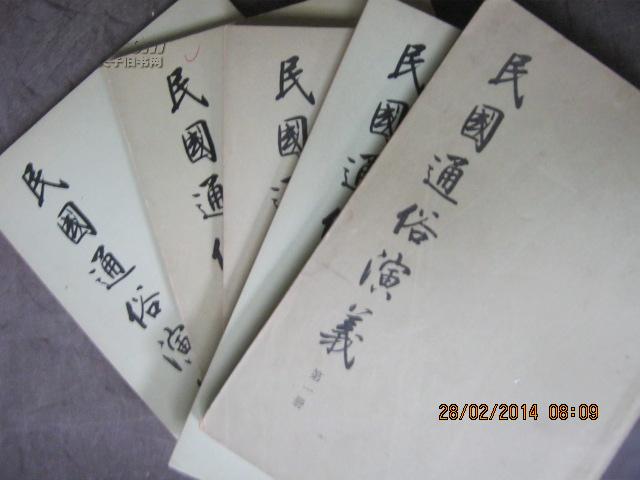 民國通俗演
民國通俗
民國通
民國通俗
民國通俗演義
第一册
28/02/2014 08:09
子旧书网